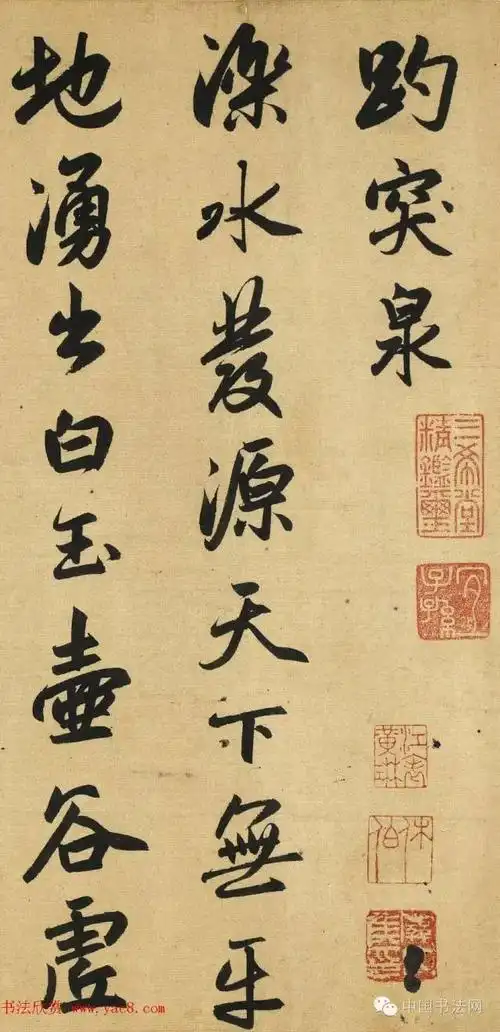 趵突泉
濼水發源天下無平
地湧出白玉壺谷虛
三希堂精鑑璽
宜子孫
江表黃琳
休伯
书法欣赏 www.yac8.com
中国书法网